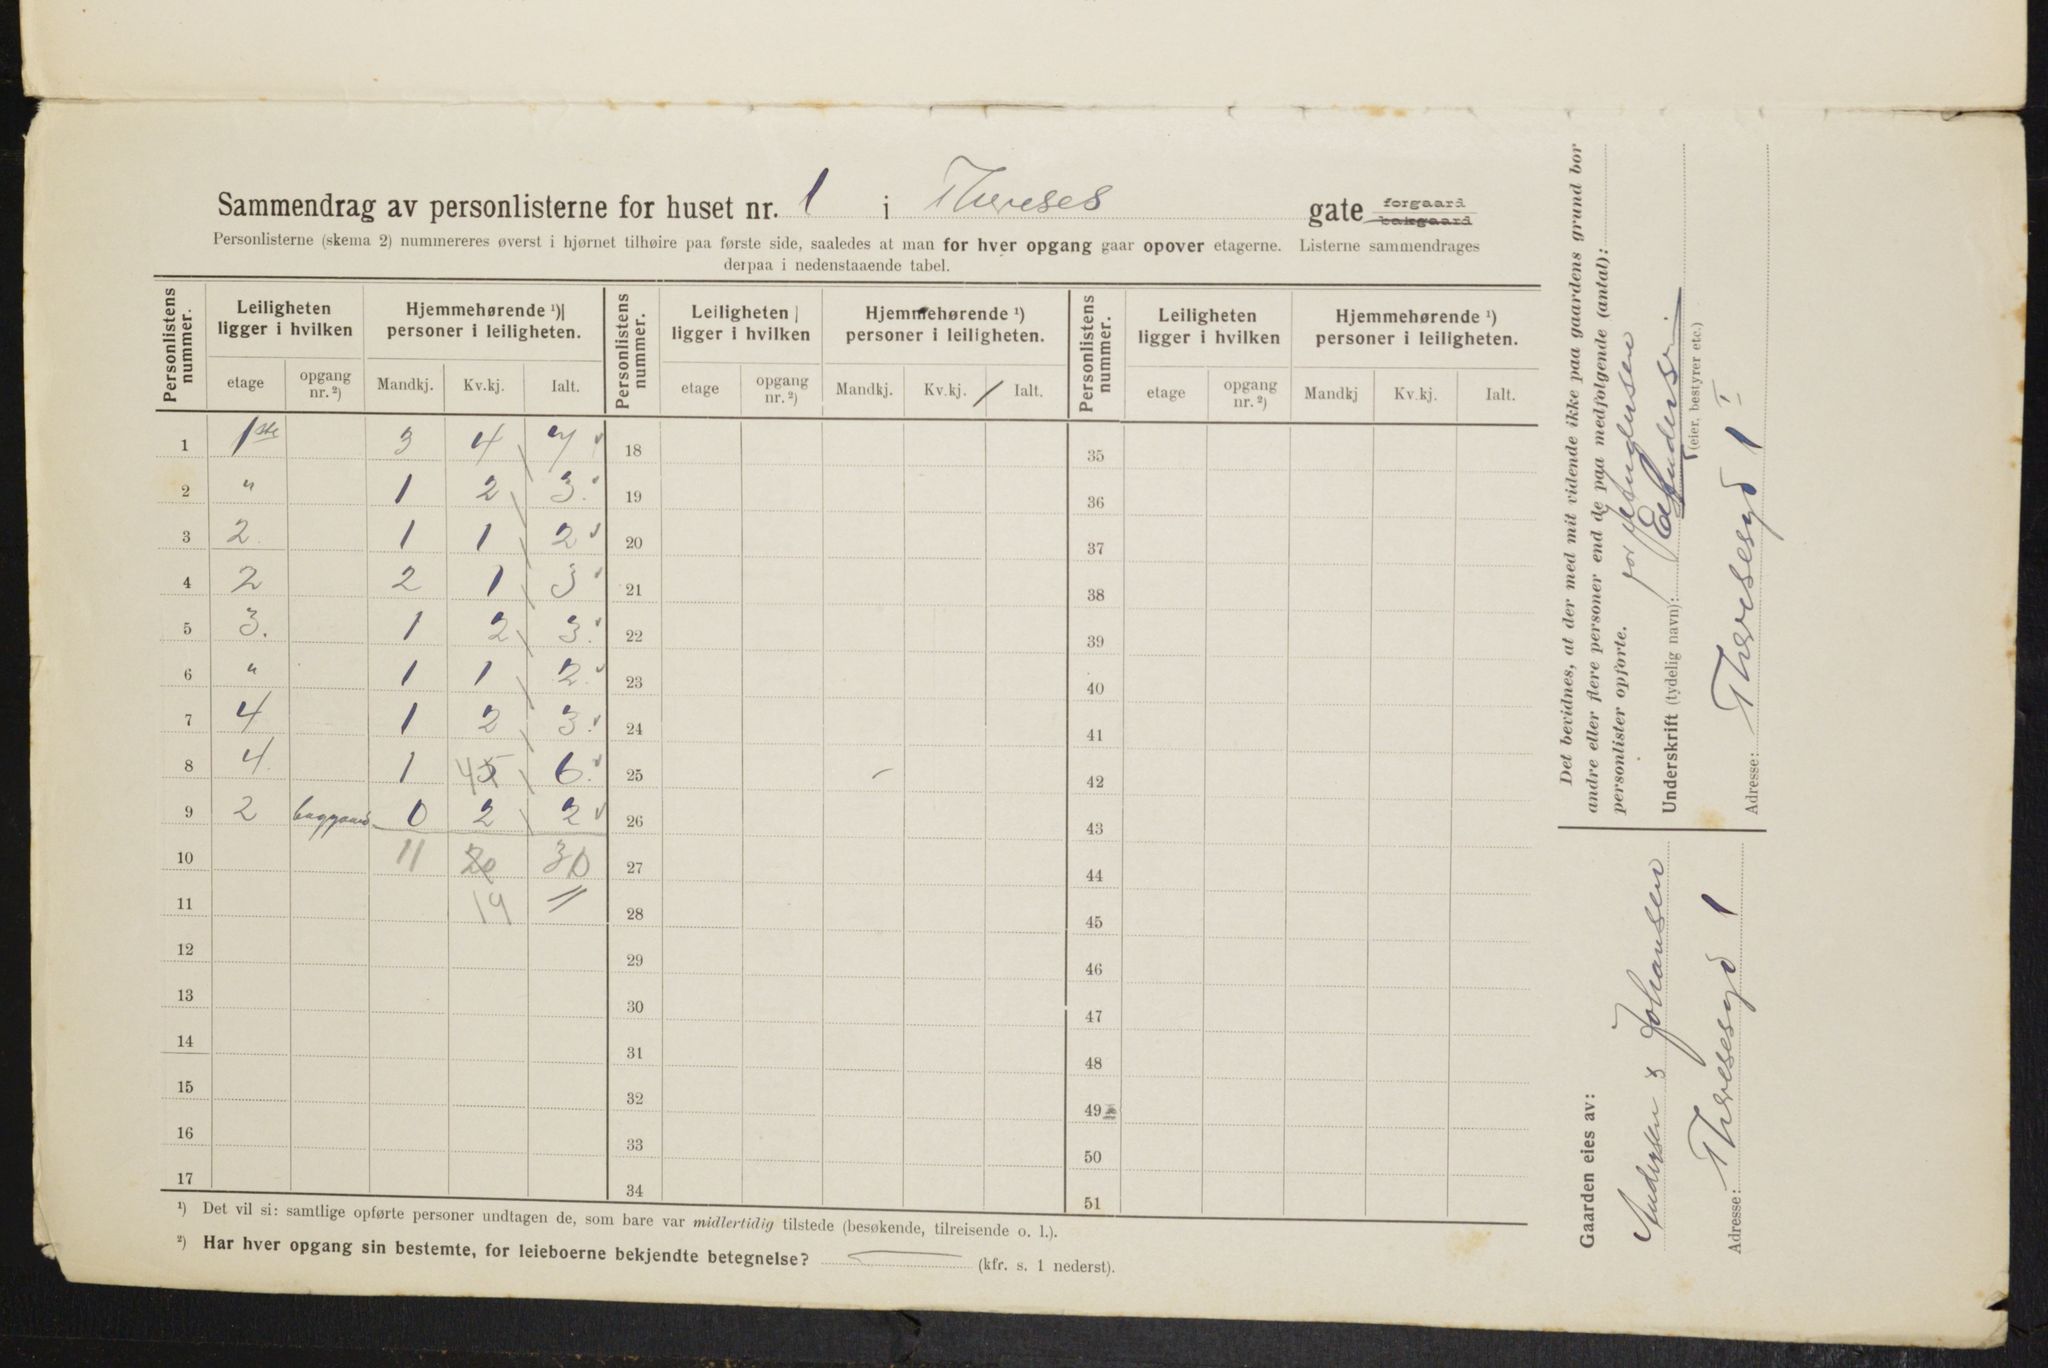 Sammendrag av personlisterne for huset nr. 1 i Thereses gate forgaard bakgaard
Personlisterne (skema 2) nummereres øverst i hjørnet tilhøire paa første side, saaledes at man for hver opgang gaar opover etagerne. Listerne sammendrages
derpaa i nedenstaaende tabel.
Personlistens nummer. Leiligheten ligger i hvilken Hjemmehørende ¹) personer i leiligheten. Personlistens nummer. Leiligheten ligger i hvilken Hjemmehørende ¹) personer i leiligheten. Personlistens nummer. Leiligheten ligger i hvilken Hjemmehørende ¹) personer i leiligheten.
etage opgang nr. ²) Mandkj. Kv.kj. Ialt. etage opgang nr. ²) Mandkj. Kv.kj. Ialt. etage opgang nr. ²) Mandkj Kv.kj. Ialt.
1 1ste 3 4 7 18 35
2 " 1 2 3. 19 36
3 2. 1 1 2 20 37
4 2 2 1 3 21 38
5 3. 1 2 3. 22 39
6 " 1 1 2. 23 40
7 4 1 2 3. 24 41
8 4. 1 4 5 6. 25 42
9 2 baggaard 0 2 2 26 43
10 11 20 30 27 44
11 19 28 45
12 29 46
13 30 47
14 31 48
15 32 49
16 33 50
17 34 51
¹) Det vil si: samtlige opførte personer undtagen de, som bare var midlertidig tilstede (besøkende, tilreisende o. l.).
²) Har hver opgang sin bestemte, for leieboerne bekjendte betegnelse? (kfr. s. 1 nederst).
Det bevidnes, at der med mit vidende ikke paa gaardens grund bor
andre eller flere personer end de paa medfølgende (antal):
personlister opførte. for
Underskrift (tydelig navn):
(eier, bestyrer etc.)
Adresse: Theresesgd 1 I
Gaarden eies av:
Andersen & Johansen
Adresse: Theresesgd 1